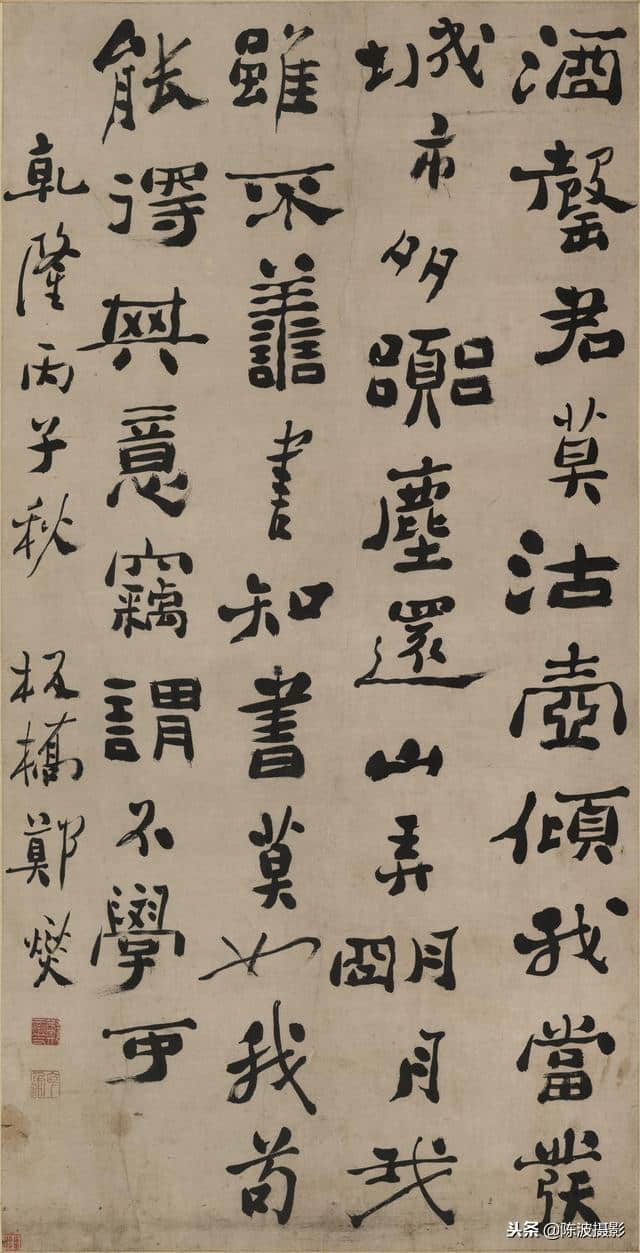 酒罄君莫沽壺傾我當發
城市多嚻塵還山弄朙月我
雖不譱書知書莫如我苟
能得其意竊謂不學可
乾隆丙子秋 板橋鄭燮
头条 @陈波摄影